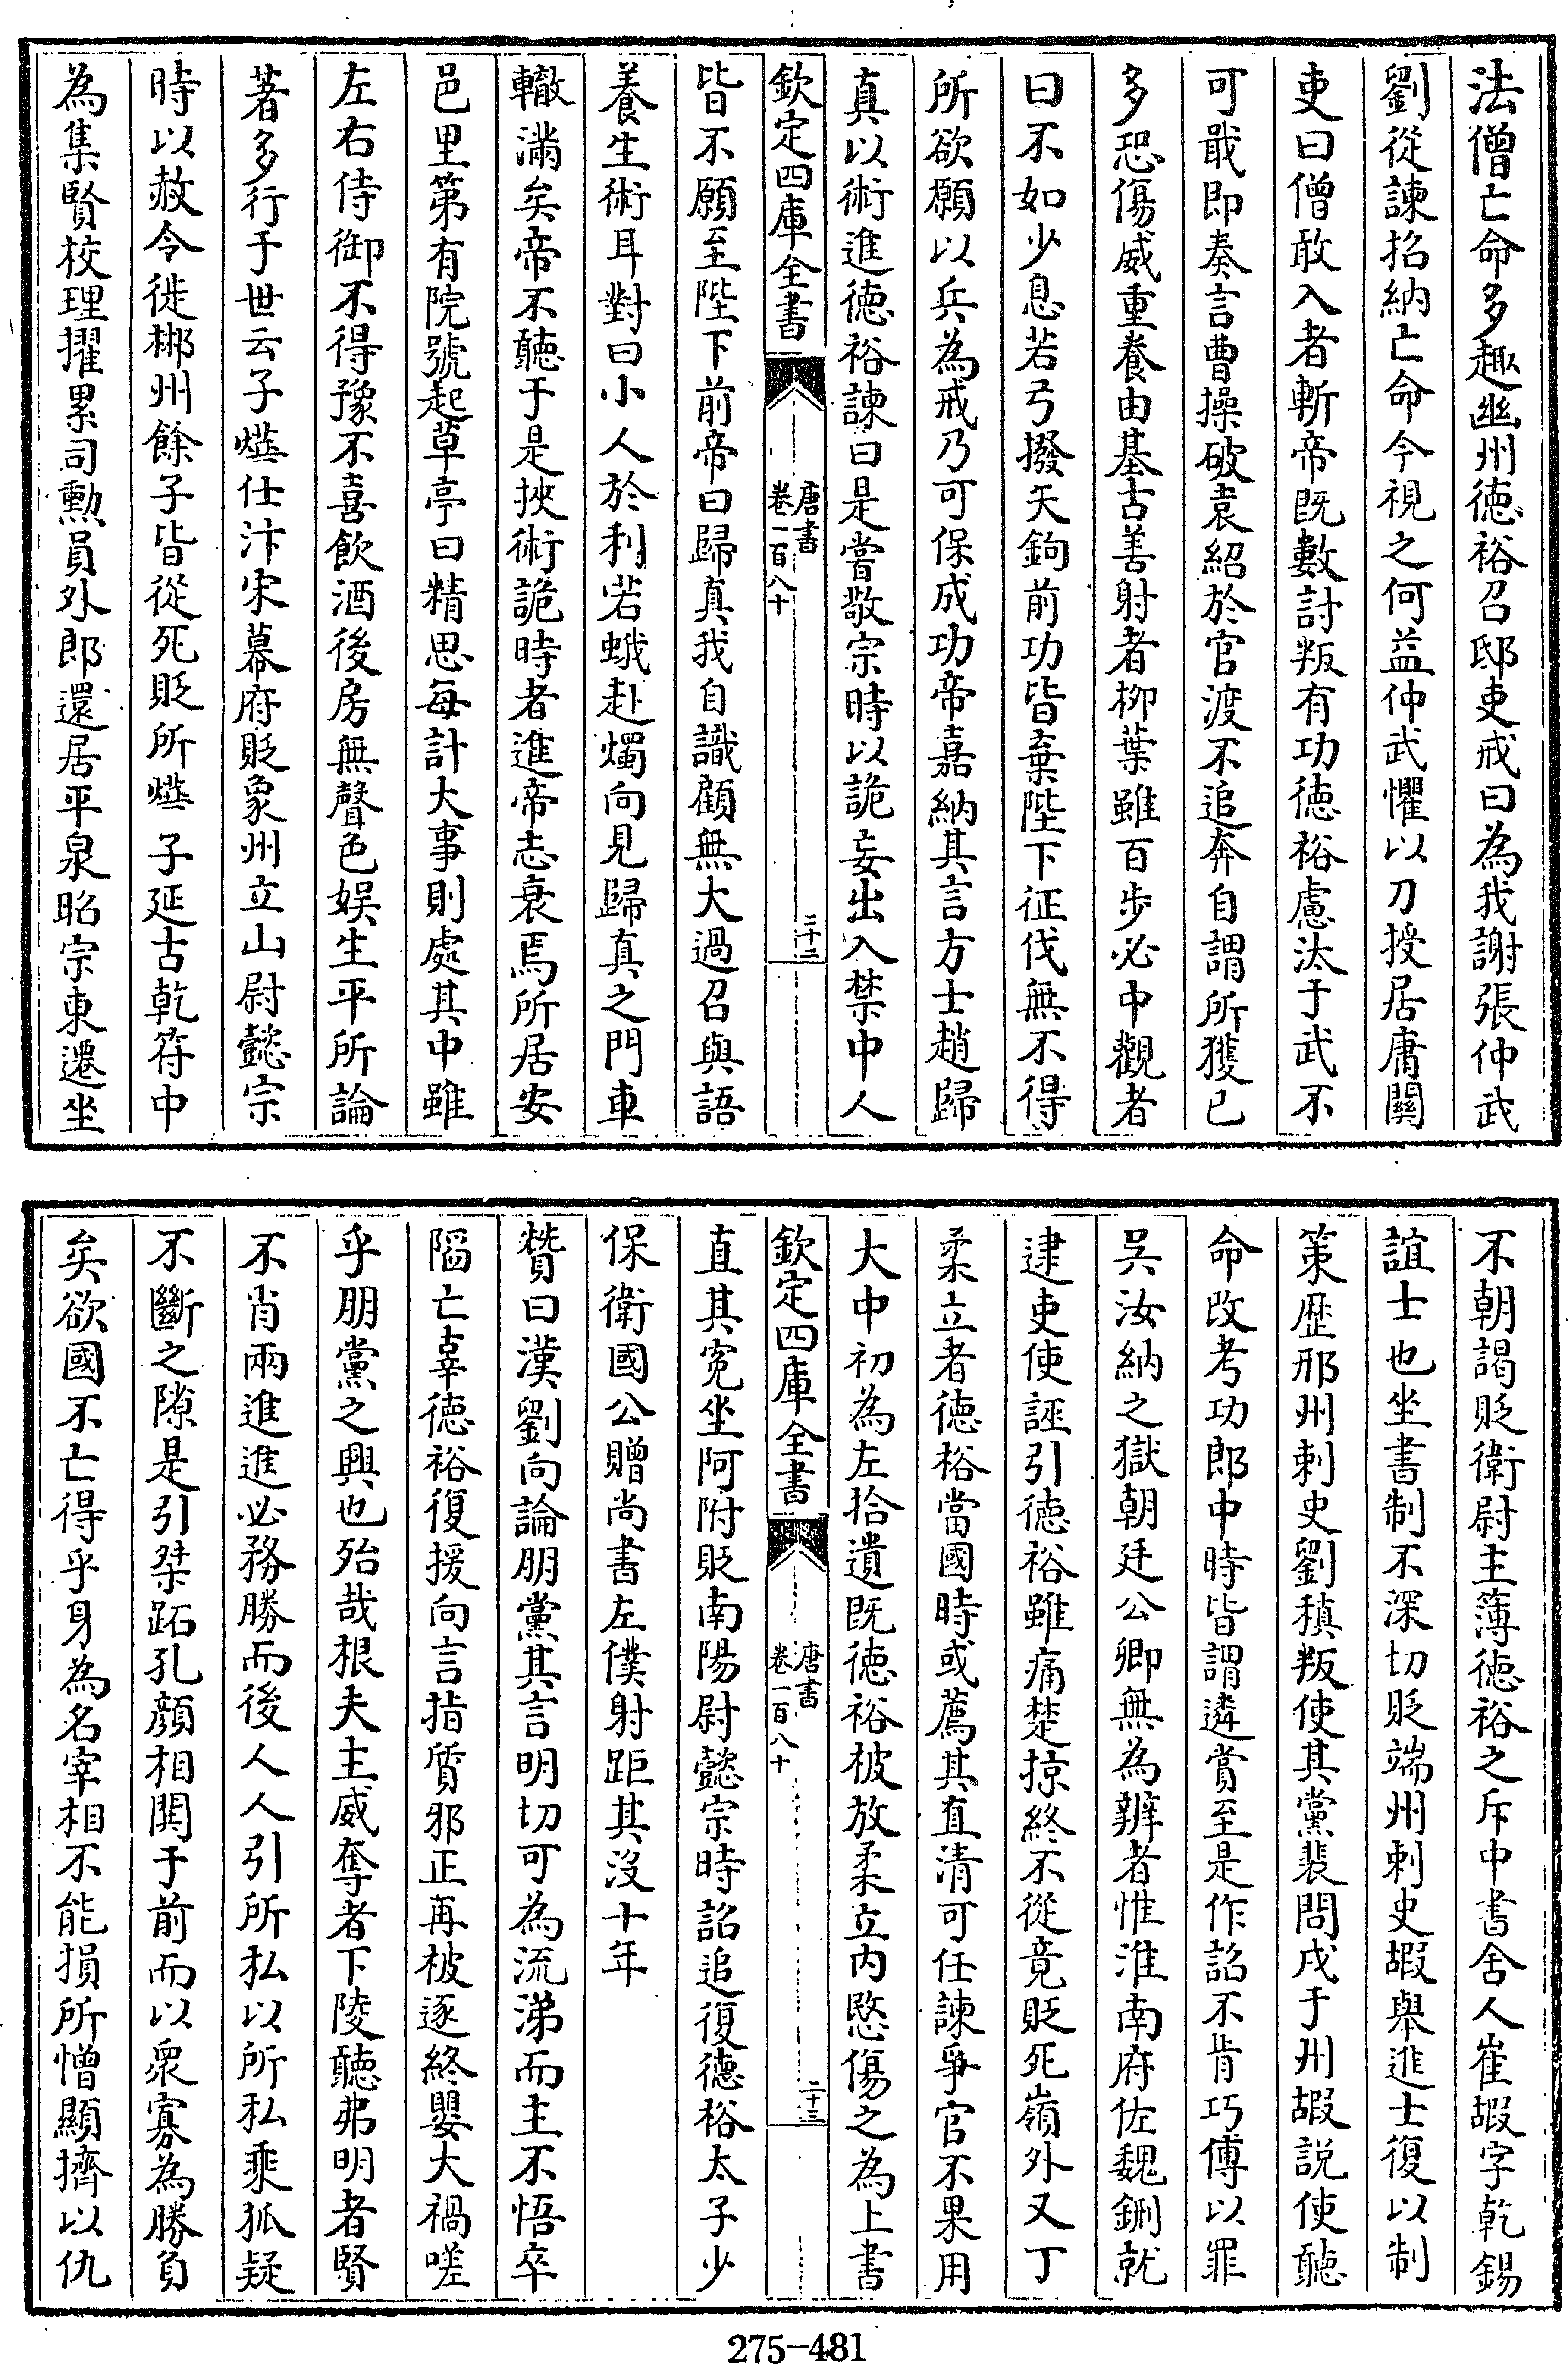 法僧亡命多趣幽州德裕召邸吏戒曰為我謝張仲武
劉從諫招納亡命今視之何益仲武懼以刀授居庸關
吏曰僧敢入者斬帝既數討叛有功德裕慮汰于武不
可戢即奏言曹操破袁紹於官渡不追奔自謂所獲已
多恐傷威重養由基古善射者柳葉雖百步必中觀者
曰不如少息若弓撥矢鉤前功皆棄陛下征伐無不得
所欲願以兵為戒乃可保成功帝嘉納其言方士趙歸
真以術進德裕諫曰是嘗敬宗時以詭妄出入禁中人
欽定四庫全書
唐書
卷一百八十
三十二
皆不願至陛下前帝曰歸真我自識顧無大過召與語
養生術耳對曰小人於利若蛾赴燭向見歸真之門車
轍滿矣帝不聽于是挾術詭時者進帝志衰焉所居安
邑里第有院號起草亭曰精思每計大事則處其中雖
左右侍御不得豫不喜飲酒後房無聲色娛生平所論
著多行于世云子燁仕汴宋幕府貶象州立山尉懿宗
時以赦令徙郴州餘子皆從死貶所燁子延古乾符中
為集賢校理擢累司勳員外郎還居平泉昭宗東遷坐
不朝謁貶衛尉主簿德裕之斥中書舍人崔嘏字乾錫
誼士也坐書制不深切貶端州刺史嘏舉進士復以制
策歷邢州刺史劉稹叛使其黨裴問戍于州嘏説使聽
命改考功郎中時皆謂遴賞至是作詔不肯巧傅以罪
吳汝納之獄朝廷公卿無為辨者惟淮南府佐魏鉶就
逮吏使誣引德裕雖痛楚掠終不從竟貶死嶺外又丁
柔立者德裕當國時或薦其直清可任諫爭官不果用
大中初為左拾遺既德裕被放柔立內愍傷之為上書
欽定四庫全書
唐書
卷一百八十
三十三
直其寃坐阿附貶南陽尉懿宗時詔追復德裕太子少
保衛國公贈尚書左僕射距其沒十年
贊曰漢劉向論朋黨其言明切可為流涕而主不悟卒
陷亡辜德裕復援向言指質邪正再被逐終嬰大禍嗟
乎朋黨之興也殆哉根夫主威奪者下陵聽弗明者賢
不肖兩進進必務勝而後人人引所私以所私乘狐疑
不斷之隙是引桀跖孔顏相鬨于前而以眾寡為勝負
矣欲國不亡得乎身為名宰相不能損所憎顯擠以仇
275-481